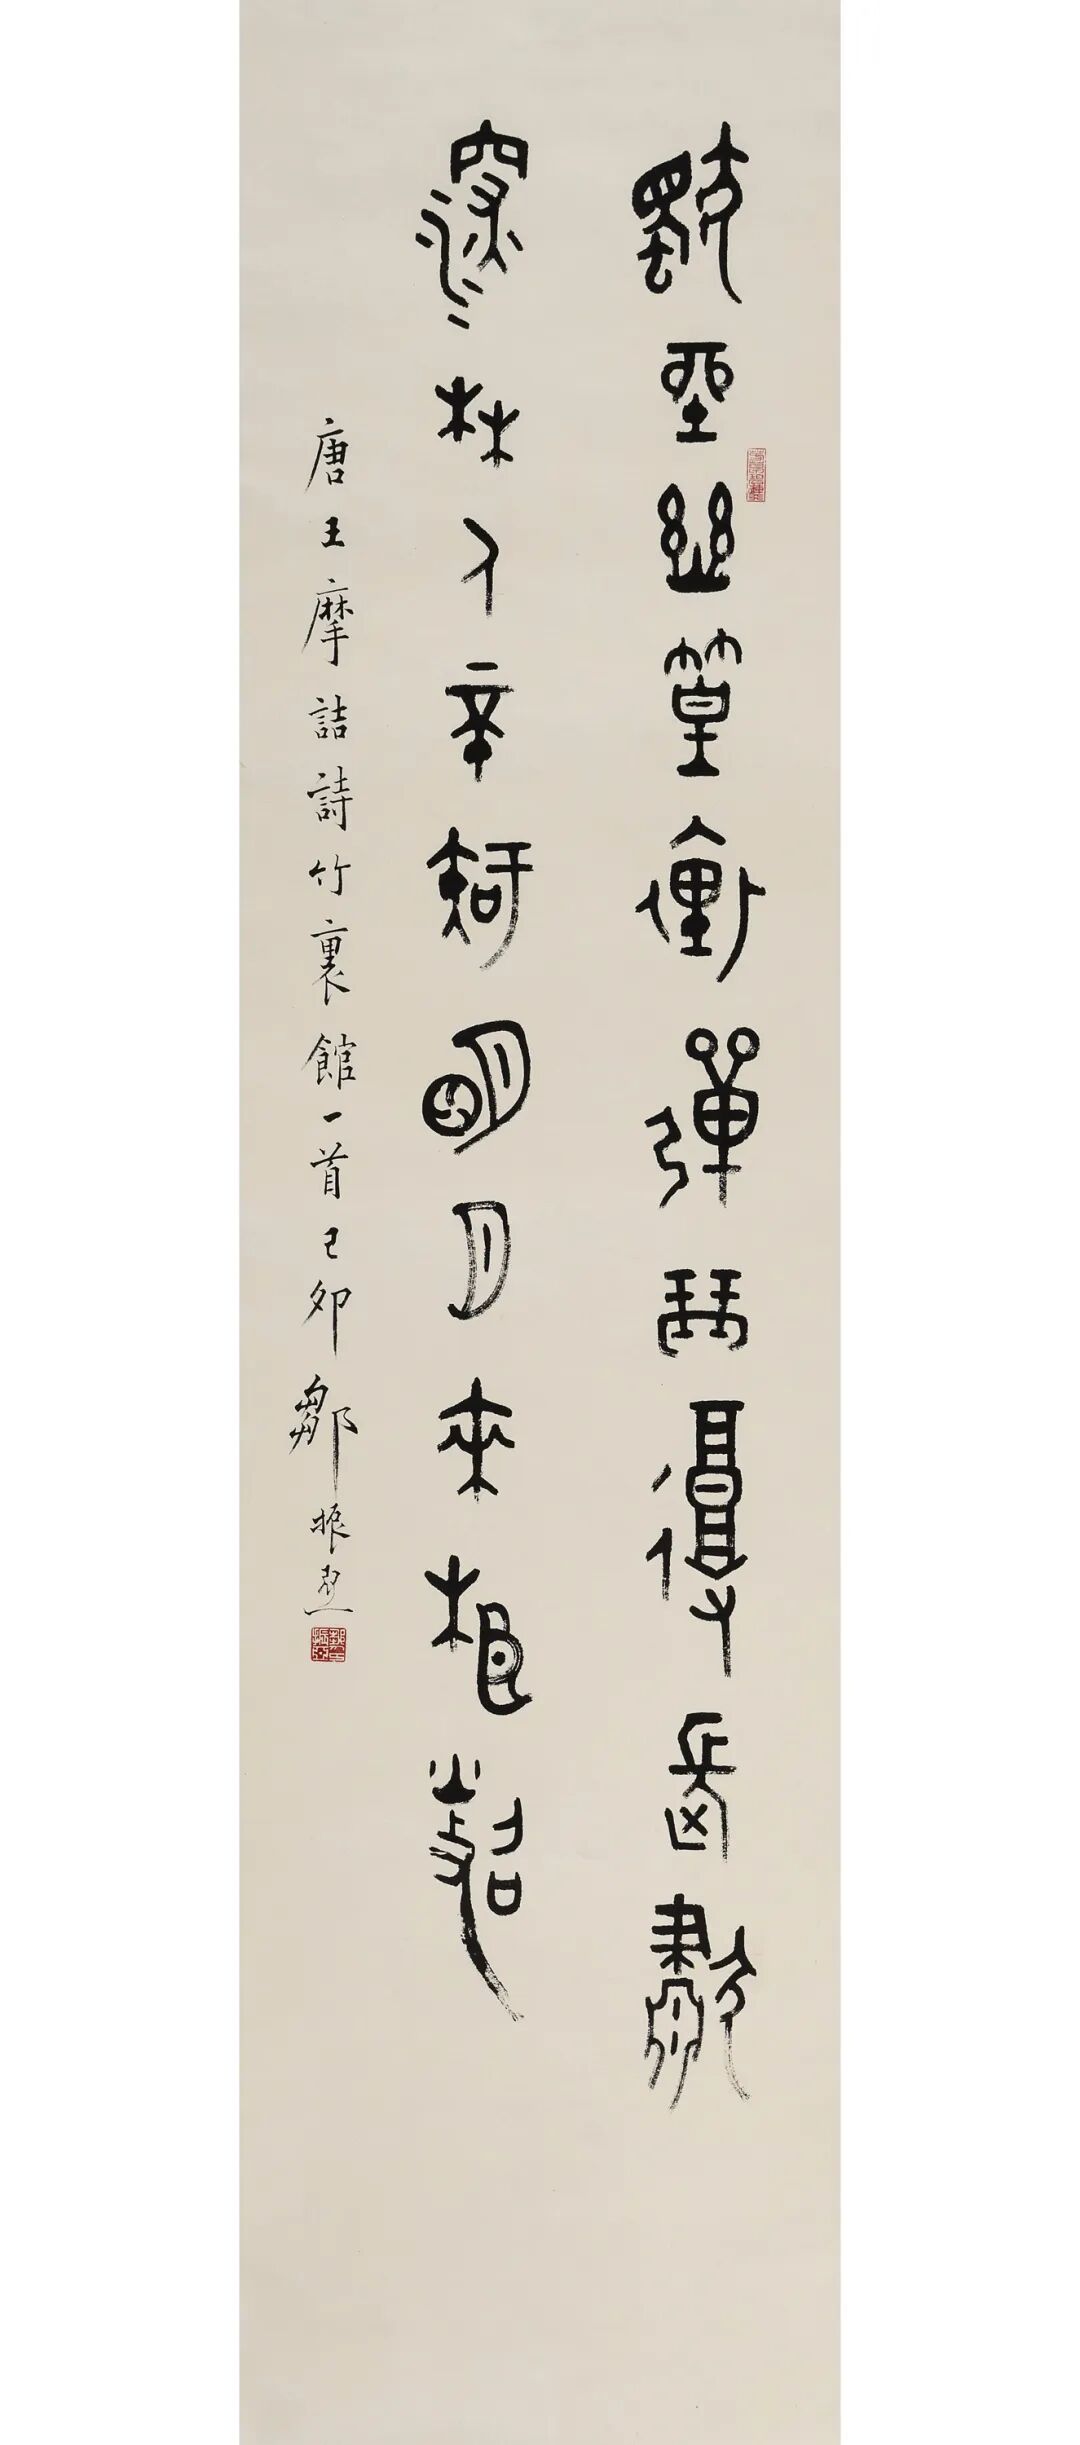 獨坐幽篁裏彈琴復長嘯
深林人不知明月來相照
唐王摩詰詩竹裏館一首己卯鄒振亞